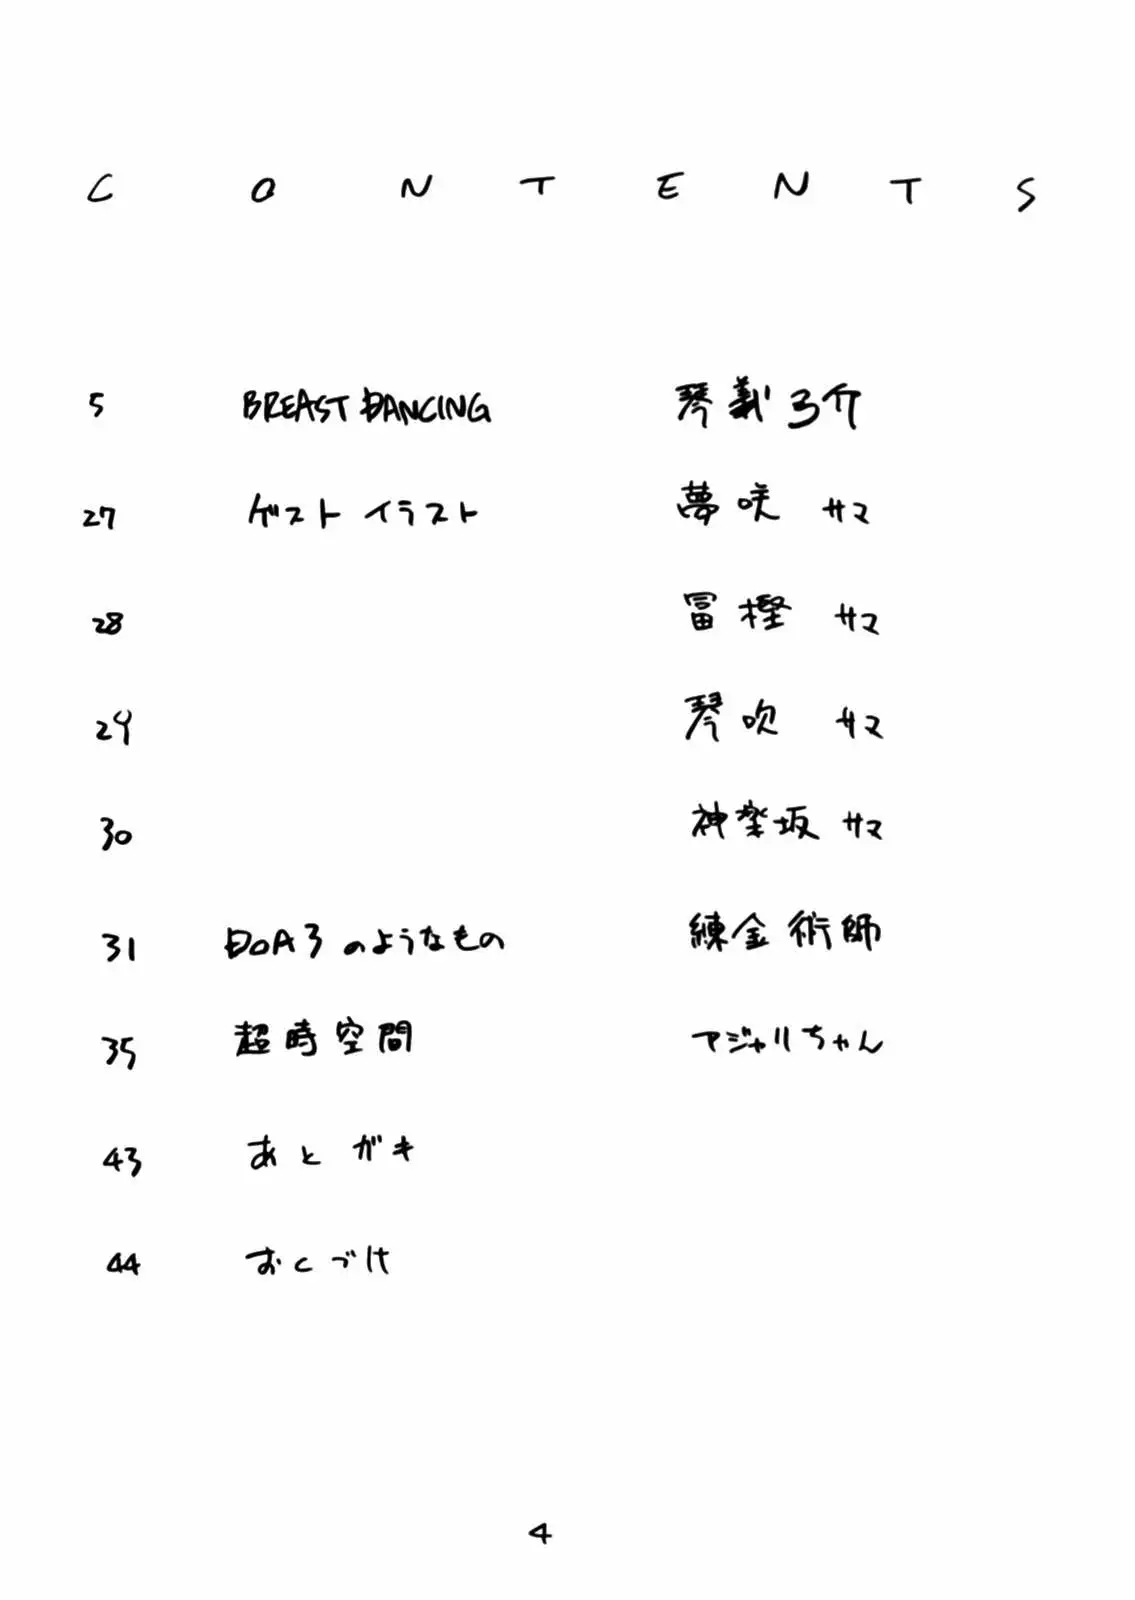 CONTENTS
5 BREAST DANCING 琴義弓介
27 ゲストイラスト 夢咲 サマ
28 冨樫 サマ
29 琴吹 サマ
30 神楽坂 サマ
31 DOA3のようなもの 練金術師
35 超時空間 アジャリちゃん
43 あとガキ
44 おくづけ
4